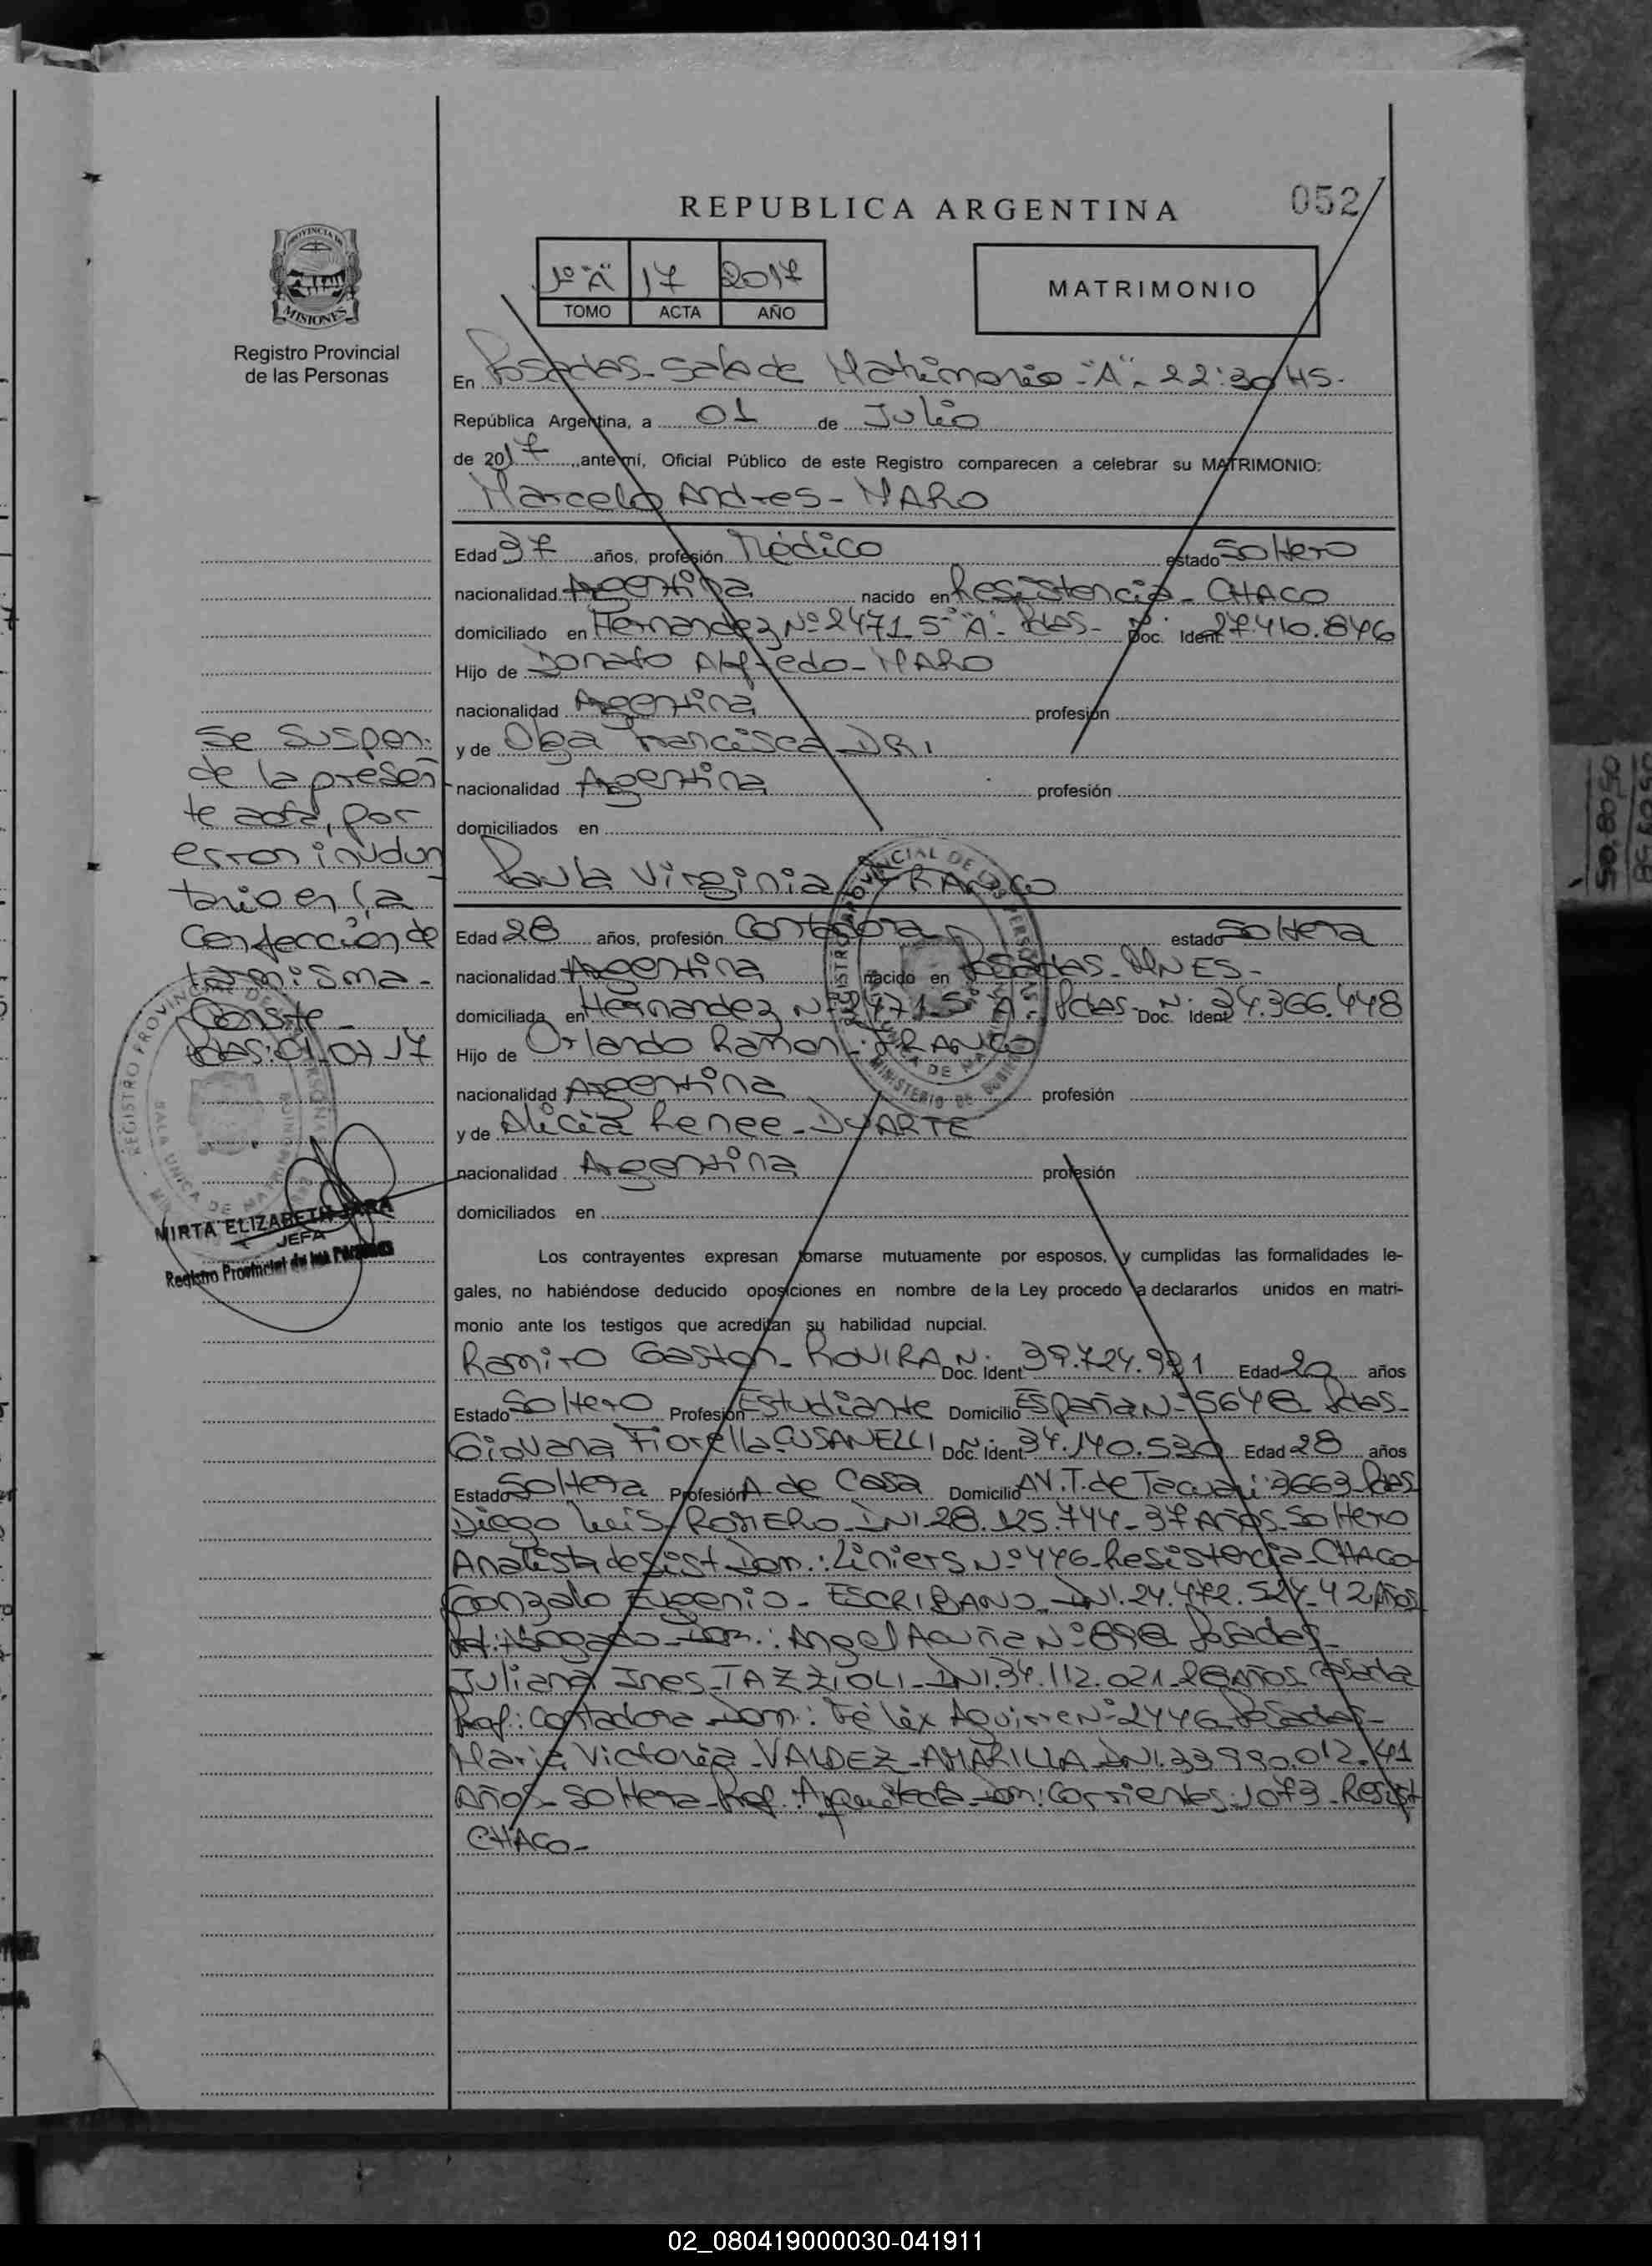 REPUBLICA ARGENTINA
052
PROVINCIA DE
MISIONES
Registro Provincial
de las Personas
1º "A" 17 2017
TOMO ACTA AÑO
MATRIMONIO
En Posadas - Sala de Matrimonio - "A" - 22:30 HS.
República Argentina, a 01 de Julio
de 2017, ante mí, Oficial Público de este Registro comparecen a celebrar su MATRIMONIO:
Marcelo Andres - MARO
Edad 37 años, profesión Médico estado Soltero
nacionalidad Argentina nacido en Resistencia - CHACO
domiciliado en Hernandez Nº 2471 5º "A" - Pdas - Doc. Ident. 27.410.846
Hijo de Donato Alfredo - MARO
nacionalidad Argentina profesión
y de Olga Francisca - DRI
nacionalidad Argentina profesión
domiciliados en
Paula Virginia FRANCO
Edad 28 años, profesión Contadora estado Soltera
nacionalidad Argentina nacido en Posadas - MNES -
domiciliada en Hernandez Nº 2471 5º "A" - Pdas - Doc. Ident. 34.366.448
Hijo de Orlando Ramon - FRANCO
nacionalidad Argentina profesión
y de Alicia Renee - DUARTE
nacionalidad Argentina profesión
domiciliados en
Los contrayentes expresan tomarse mutuamente por esposos, y cumplidas las formalidades le-
gales, no habiéndose deducido oposiciones en nombre de la Ley procedo a declararlos unidos en matri-
monio ante los testigos que acreditan su habilidad nupcial.
Ramiro Gaston - ROVIRA D.N.I. Doc. Ident. 39.724.991 Edad 20 años
Estado Soltero Profesión Estudiante Domicilio España Nº 5648 Pdas -
Giovana Fiorella CUSANELLI D.N.I. Doc. Ident. 34.140.530 Edad 28 años
Estado Soltera Profesión A. de Casa Domicilio AV. T. de Tacuari: 3663 Pdas
Diego Luis - ROMERO - DNI 28.125.744 - 37 Años - Soltero
Analista de Sist - Dom.: Liniers Nº 446 - Resistencia - CHACO
Gonzalo Eugenio - ESCRIBANO - DNI. 24.472.527 - 42 Años
Prof: Abogado - Dom.: Angel Acuña Nº 898 Posadas -
Juliana Ines - TAZZIOLI - DNI. 34.112.021 - 28 Años Casada
Prof: Contadora - Dom.: Félix Aguirre Nº 2446 Posadas -
Maria Victoria - VALDEZ - AMARILLA - DNI. 33.990.012 - 41
Años - Soltera - Prof. Arquitecta - Dom: Corrientes: 1073 - Resist
CHACO -
Se suspen-
de la presen-
te acta, por
error involun
tario en la
Confección de
la misma -
Conste -
Pdas: 01-07-17
REGISTRO PROVINCIAL DE LAS PERSONAS
SALA UNICA DE MATRIMONIOS
REGISTRO PROVINCIAL DE LAS PERSONAS
MINISTERIO DE GOBIERNO
MIRTA ELIZABETH JARA
JEFA
Registro Provincial de las Personas
02_080419000030-041911